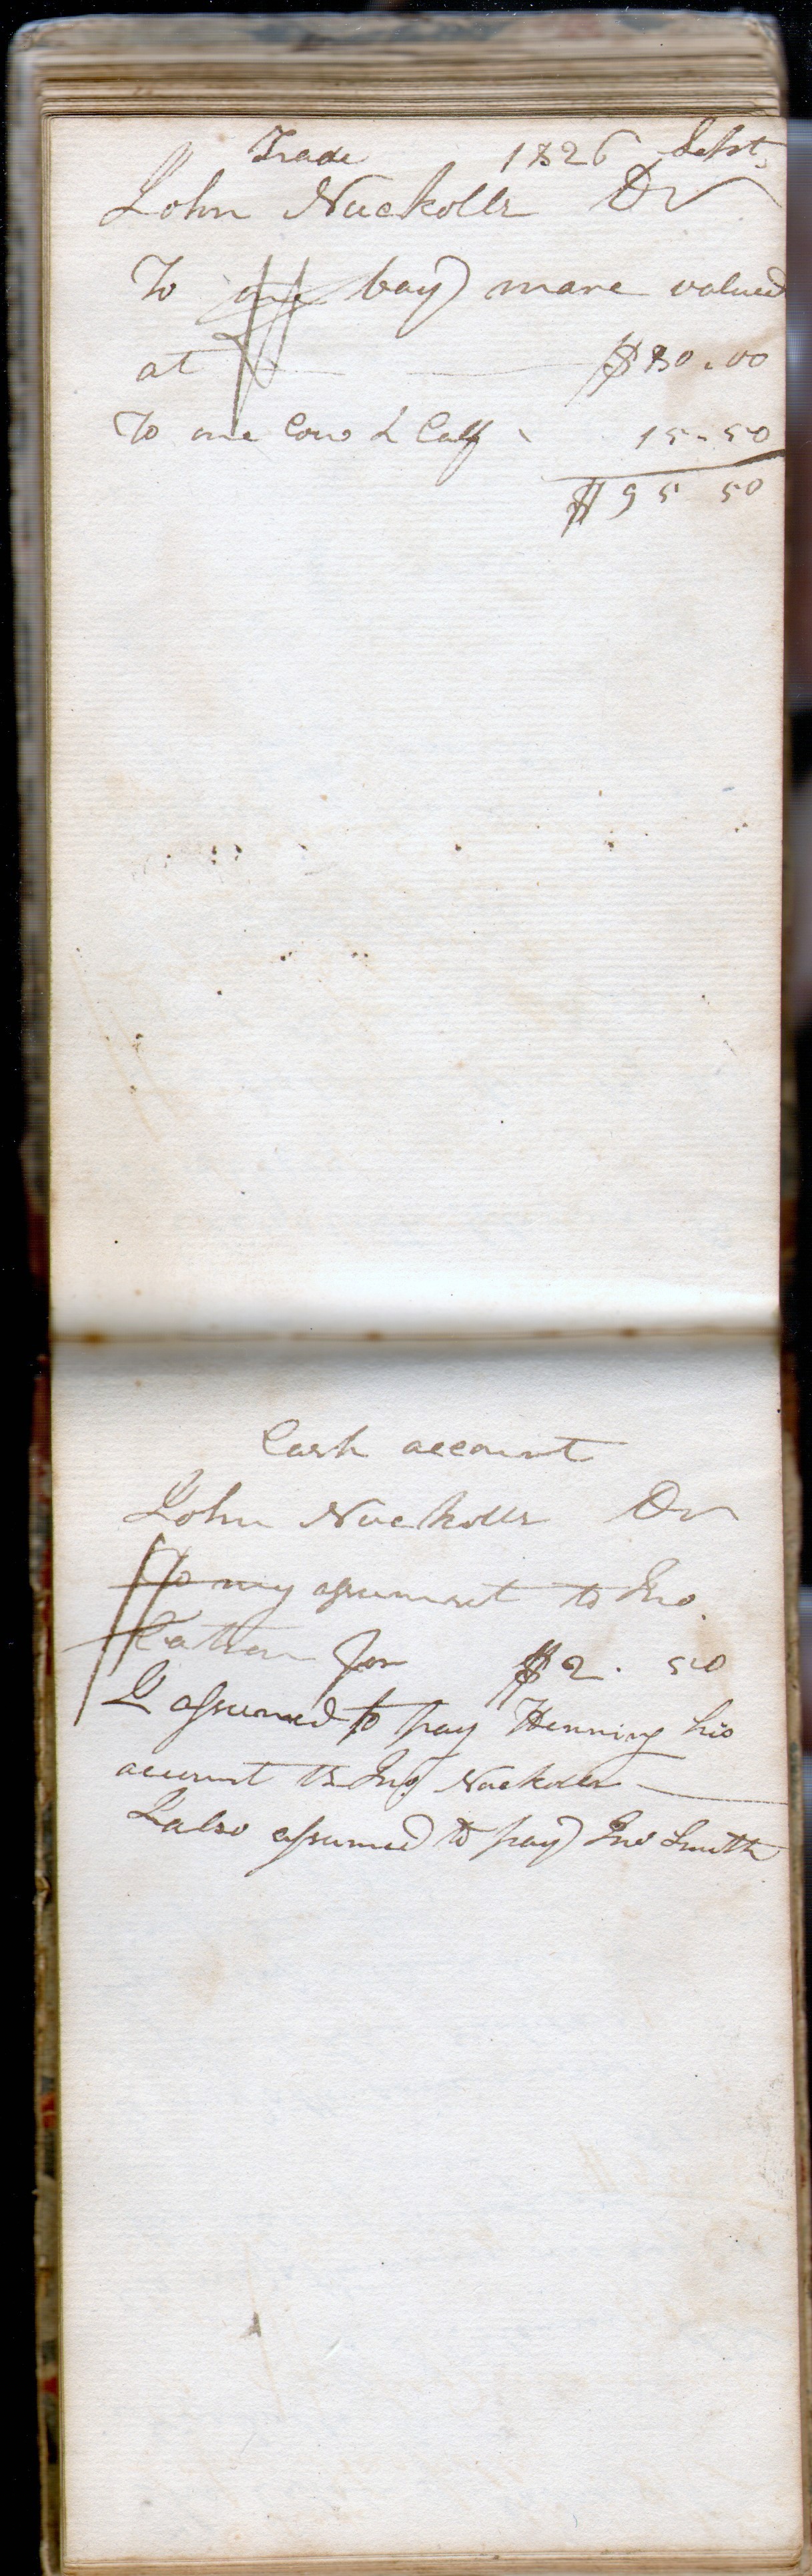 Trade 1826 Sept.
John Nuckolls Dr
To one bay mare valued
at $80.00
To one Cow & Calf 15.50
$95 50
Cash account
John Nuckolls Dr
To my assumsit to Jno.
Catron for $2. 50
I assumed to pay Henning his
account to Jno Nuckolls
I also assumed to pay Jno Smith